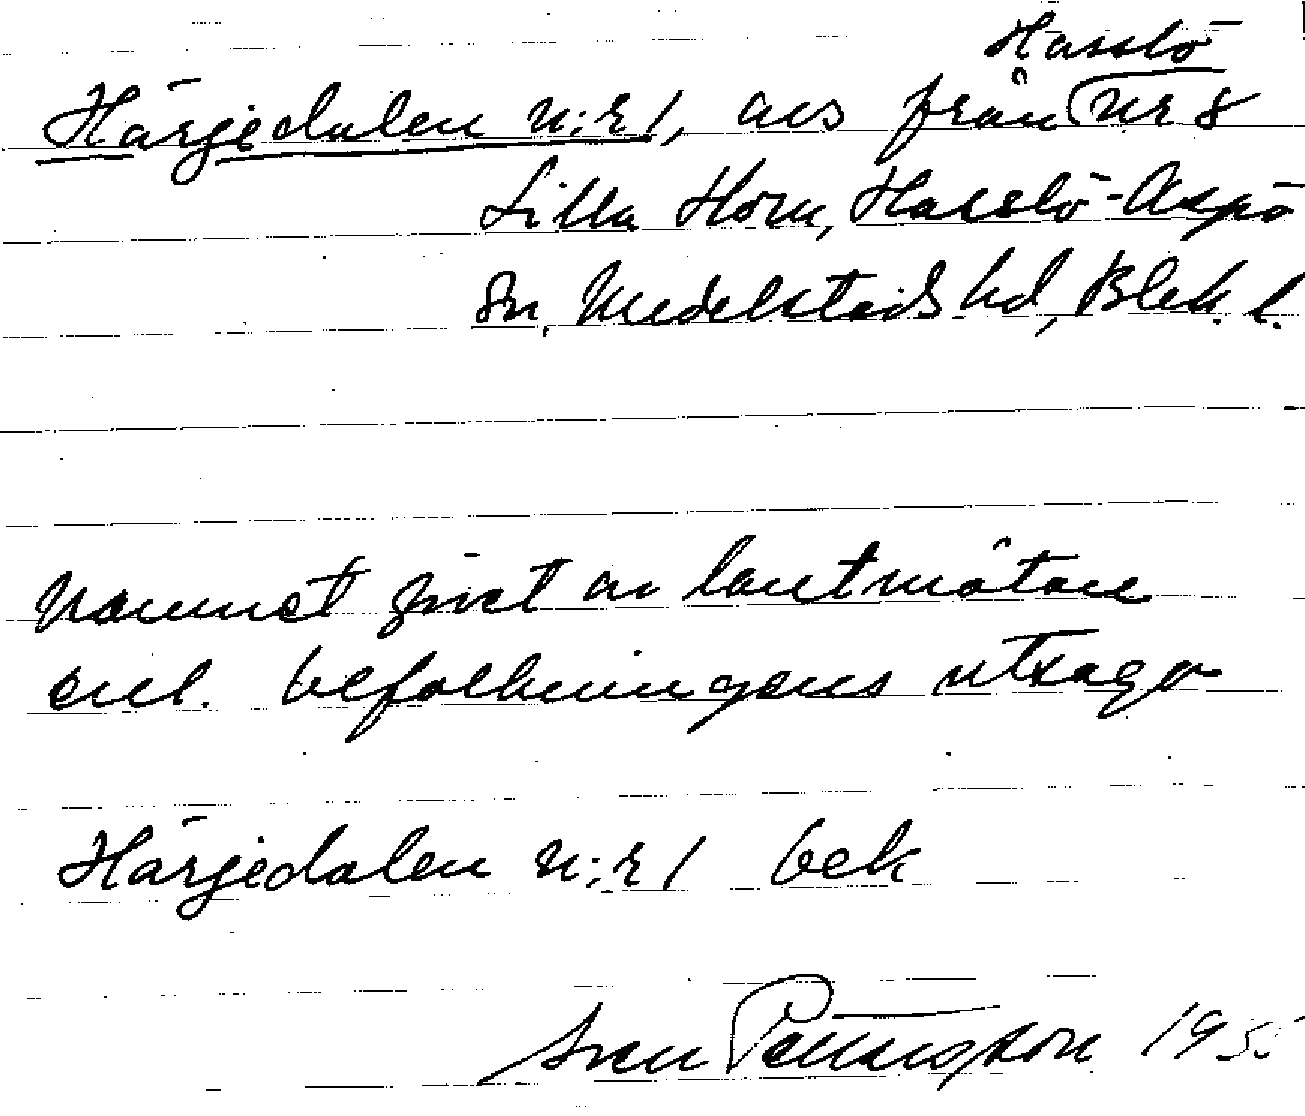 Hasslö
Härjedalen n:r 1, avs från nr 8
Lilla Horn, Hasslö-Aspö
sn, Medelstads hd, Blek. l.
Namnet givet av lantmätare
enl. befolkningens utsago
Härjedalen n:r 1 bek
Sven 1955